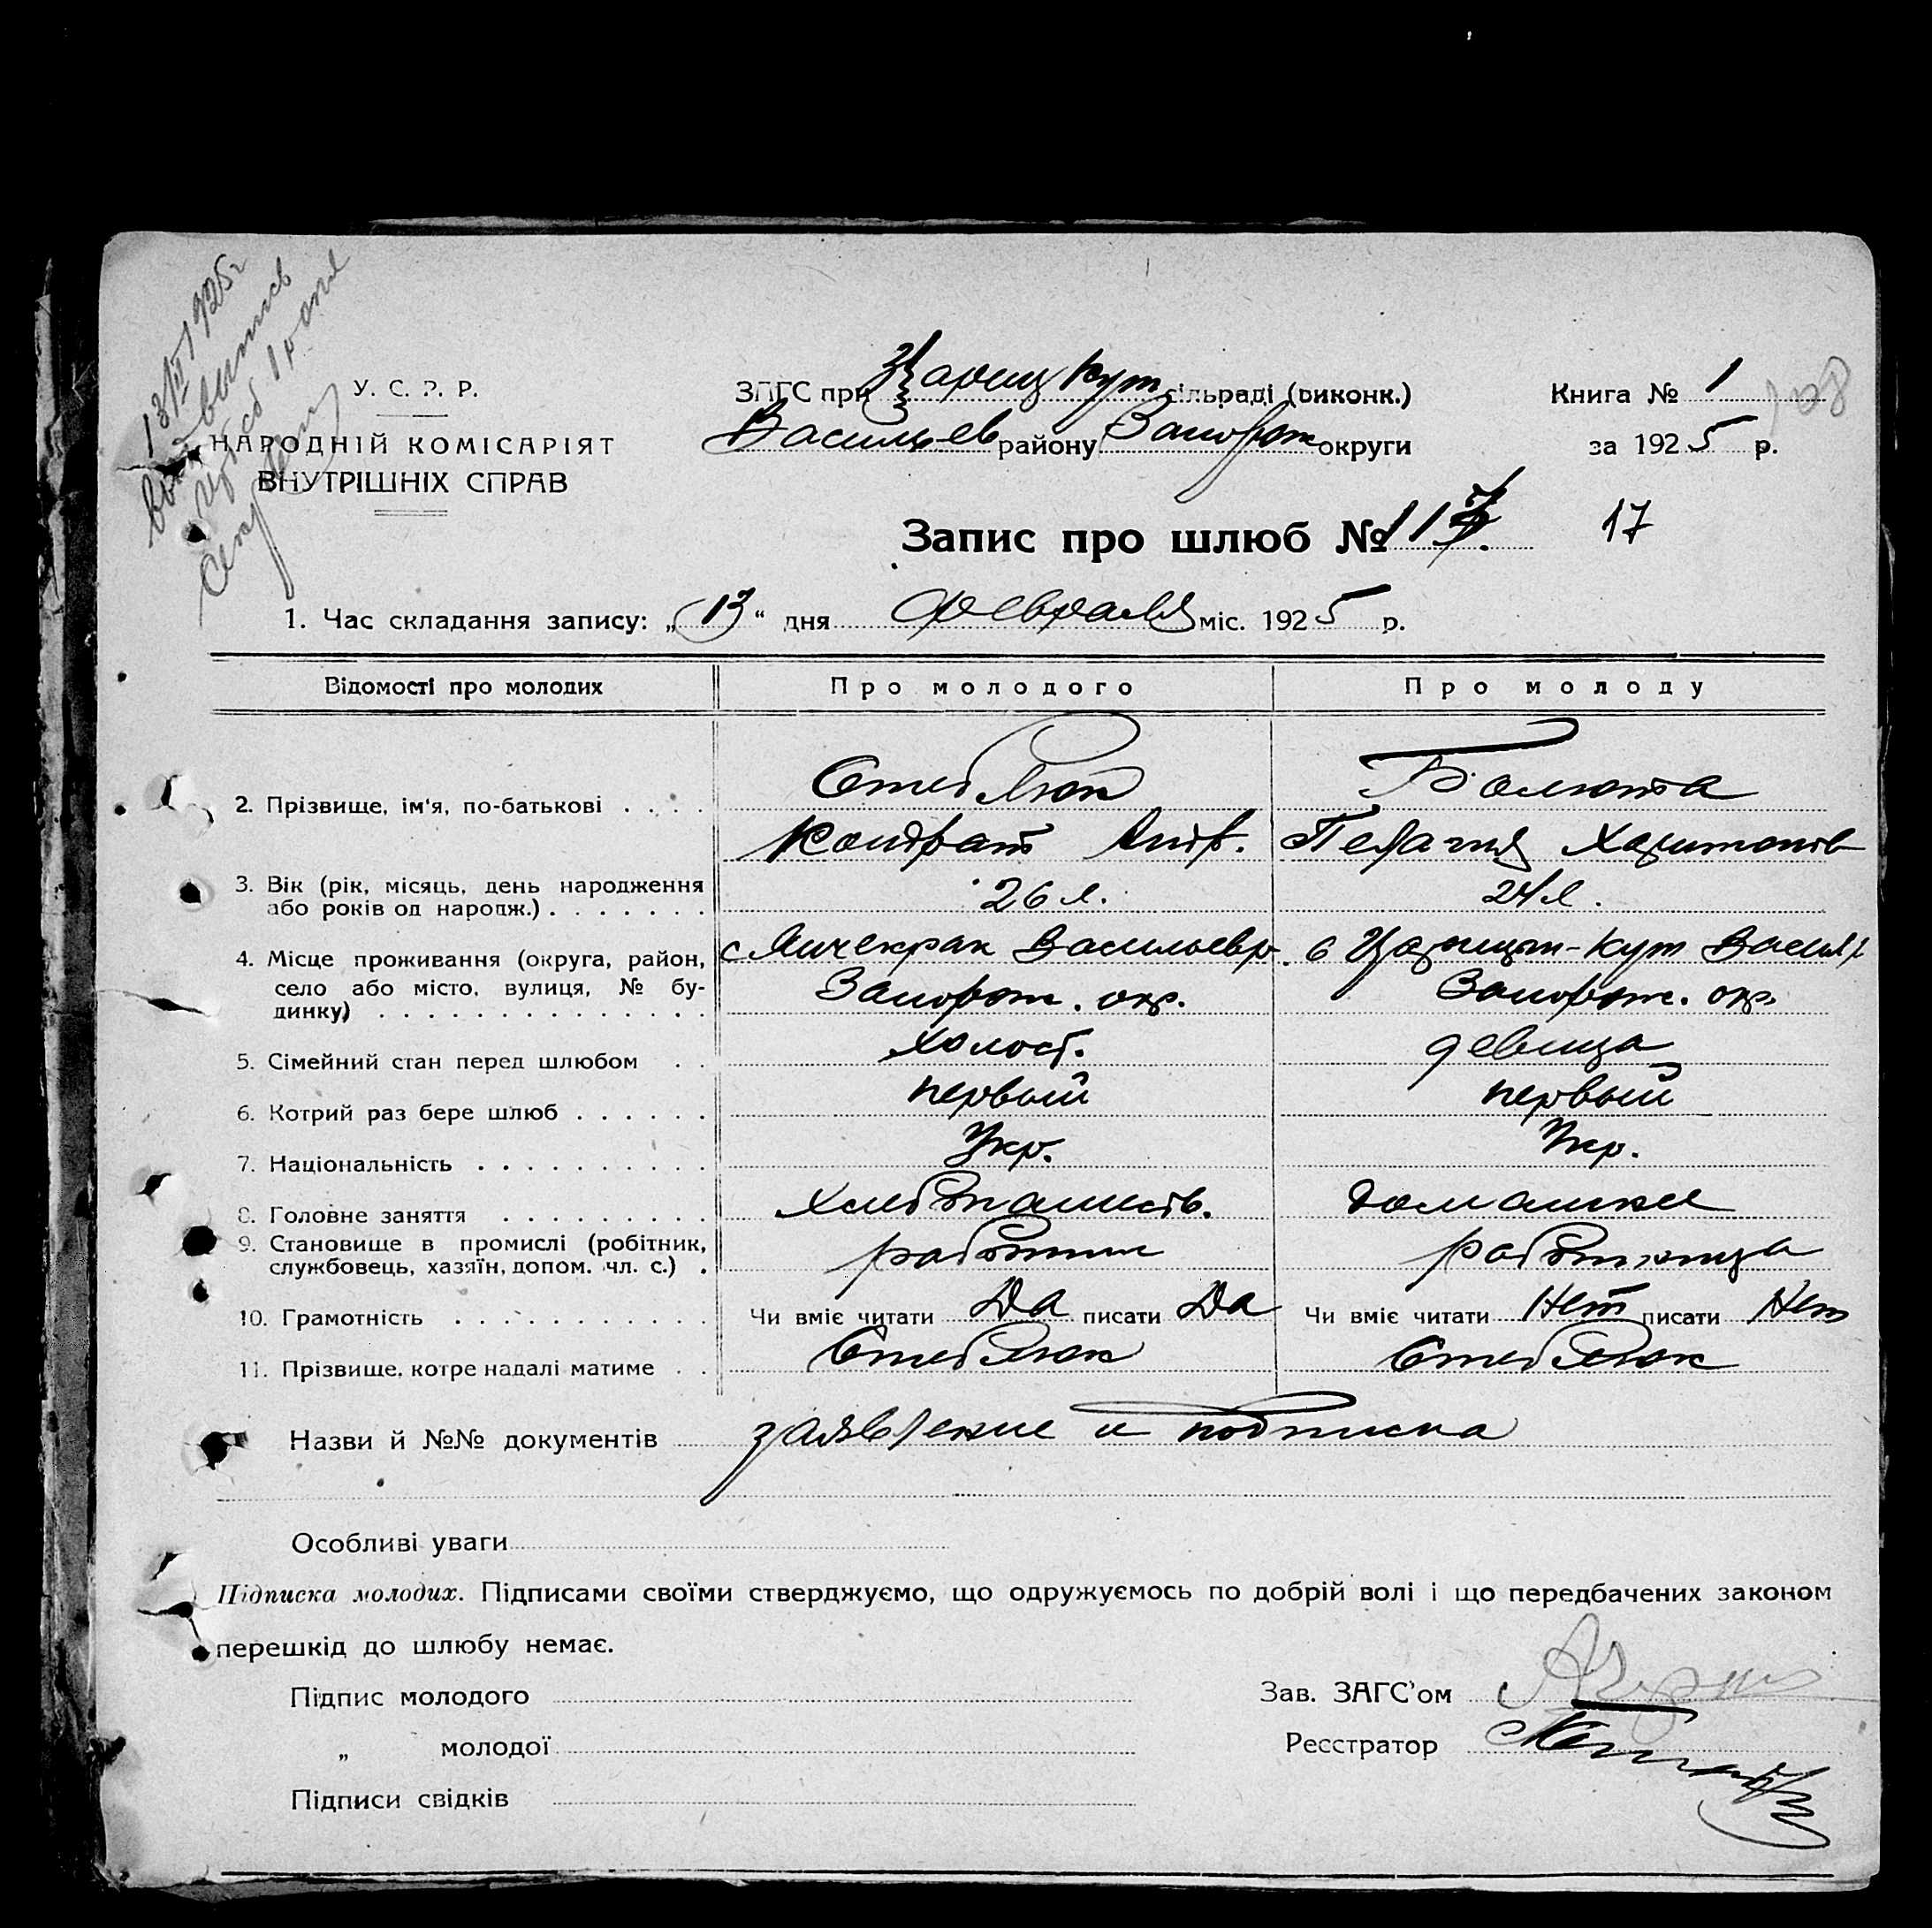 13/II 1925 г
выпись
У. С. Р. Р.
НАРОДНІЙ КОМІСАРІЯТ
ВНУТРІШНІХ СПРАВ
ЗАГС при Цариц Кут сільраді (виконк.)
Васильев району Запорож округи
Книга № 1
108
за 1925 р.
Запис про шлюб № 117. 17
1. Час складання запису: „13“ дня февраля міс. 1925 р.
Відомості про молодих Про молодого Про молоду
2. Прізвище, ім'я, по-батькові . . . . Стеблюк Балюта
Кондрат Ант. Пелагия Харитонов
3. Вік (рік, місяць, день народження
або років од народж.) . . . . . . . 26 л. 24 л.
4. Місце проживання (округа, район,
село або місто, вулиця, № бу-
динку) . . . . . . . . . . . . . .
с Янчекрак Васильевр. с Царицын-Кут Васил р
Запорож. окр. Запорож. окр.
5. Сімейний стан перед шлюбом . . холост. девица
6. Котрий раз бере шлюб . . . . . . первый первый
7. Національність . . . . . . . . . . Укр. Укр.
8. Головне заняття . . . . . . . . . хлебопашеств. домашнее
9. Становище в промислі (робітник,
службовець, хазяїн, допом. чл. с.) . работник работница
10. Грамотність . . . . . . . . . . . Чи вміє читати Да писати Да Чи вміє читати Нет писати Нет
11. Прізвище, котре надалі матиме . . Стеблюк Стеблюк
Назви й №№ документів заявление и подписка
Особливі уваги
Підписка молодих. Підписами своїми стверджуємо, що одружуємось по добрій волі і що передбачених законом
перешкід до шлюбу немає.
Підпис молодого
Зав. ЗАГС'ом
„ молодої
Реєстратор
Підписи свідків